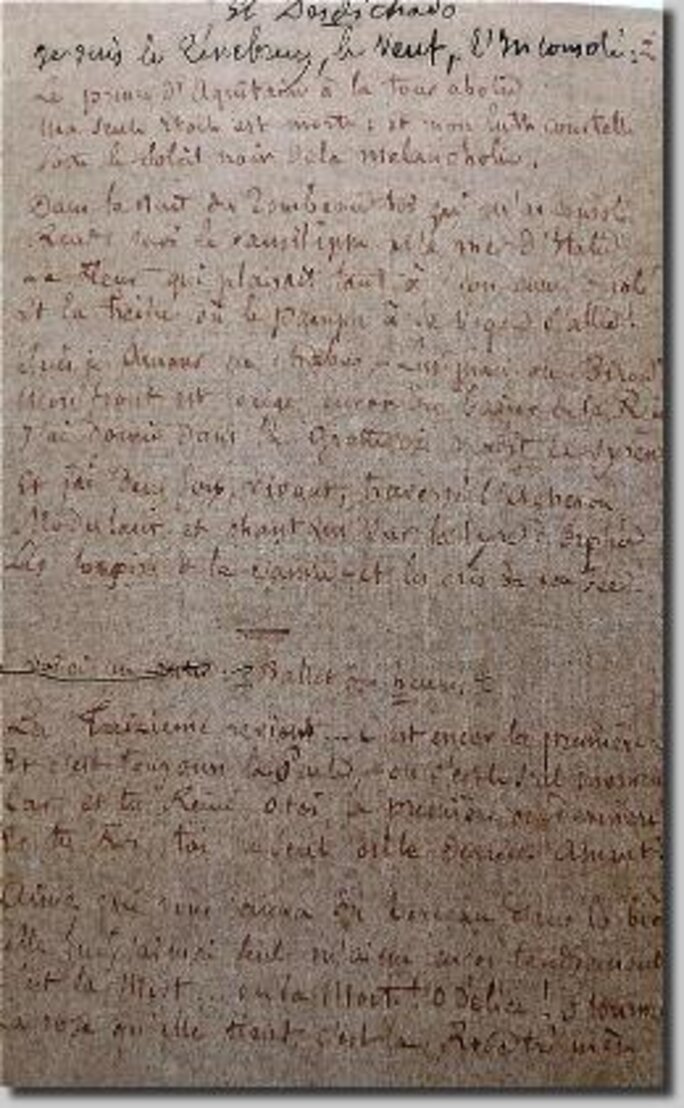 El Desdichado
je suis le Ténébreux, le Veuf, l'Inconsolé,
Le prince d'Aquitaine à la tour abolie
Ma seule étoile est morte : et mon luth constellé
Porte le Soleil noir de la mélancholie.
Dans la nuit du Tombeau toi qui m'as consolé
Rends moi le Pausilippe et la mer d'Italie
La fleur qui plaisait tant à mon cœur désolé
Et la treille où le pampre à la vigne s'allie!
Suis-je Amour ou Phébus, Lusignan ou Biron
Mon front est rouge encor du baiser de la Reine
J'ai dormi dans la Grotte où verdit la syrène
Et j'ai deux fois, vivant, traversé l'Acheron
Modulant et chantant sur la lyre d'Orphée
Les soupirs de la Sainte - et les cris de la Fée.
Ballet des heures
La Treizième revient ... c'est encor la première
Et c'est toujours la Seule, - ou c'est le seul moment
Car es tu Reine ô toi, la première ou dernière
Es tu Roi, toi le seul ou le dernier Amant?
Aimez qui vous aima du berceau dans la bière
Celle que j'aimai seul m'aime encor tendrement
C'est la Mort ... ou la Morte! O délice! ô tourment
La rose qu'elle tient c'est la Rose trémière